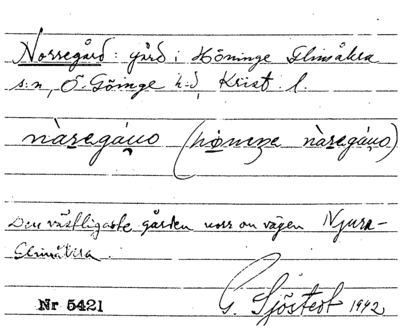 Norregård: gård i Höninge Glimåkra
s:n, Ö. Göinge h:d, Krist. l.
nàsegáɥo (høneze nàsegáɥo)
Den västligaste gården norr om vägen
Glimåkra.
Nr 5421
G. Sjöstedt 1942